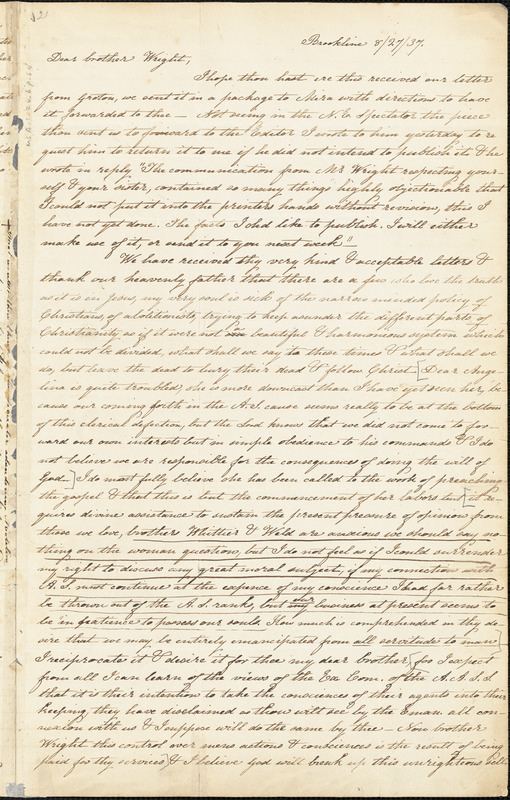 Brookline 8/27/37.
Dear brother Wright,
I hope thou hast ere this received our letter
from Groton, we sent it in a package to Mira with directions to have
it forwarded to thee — Not seeing in the N. E. Spectator the piece
thou sent us to forward to the Editor I wrote to him yesterday to re
quest him to return it to me if he did not intend to publish it & he
wrote in reply "The communication from Mr Wright respecting your-
self & your sister, contained so many things highly objectionable that
I could not put it into the printers hands without revision, this I
have not yet done. The facts I shd like to publish. I will either
make use of it, or send it to you next week"
We have received thy very kind & acceptable letters &
thank our heavenly father that there are a few who love the truth
as it is in Jesus, my very soul is sick of the narrow minded policy of
Christians, of abolitionists, trying to keep asunder the different parts of
Christianity as if it were not a beautiful & harmonious system which
could not be divided, what shall we say to these times & what shall we
do, but leave the dead to bury their dead & follow Christ. [Dear Ange-
lina is quite troubled, she is more downcast than I have yet seen her, be-
cause our coming forth in the A. S. cause seems really to be at the bottom
of this clerical defection, but the Lord knows that we did not come to for-
ward our own interests but in simple obedience to his commands & I do
not believe we are responsible for the consequences of doing the will of
God—] I do most fully believe she has been called to the work of preaching
the gospel & that this is but the commencement of her labors but [it re-
quires divine assistance to sustain the present pressure of opinion from
those we love, brothers Whittier & Weld are anxious we should say no-
thing on the woman question, but I do not feel as if I could surrender
my right to discuss any great moral subject, if my connection with
A. S. must continue at the expence of my conscience I had far rather
be thrown out of the A. S. ranks, but our business at present seems to
be in patience to possess our souls. How much is comprehended in thy de-
sire that we may be entirely emancipated from all servitude to man]
I reciprocate it & desire it for thee my dear brother, [for I expect
from all I can learn of the views of the Ex Com. of the A. A. S. S.
that it is their intention to take the consciences of their agents into their
keeping, they have disclaimed as thou will see by the Eman. all con-
nexion with us & I suppose will do the same by thee — Now brother
Wright this control over mens actions & consciences is the result of being
paid for thy services, & I believe God will break up this unrighteous